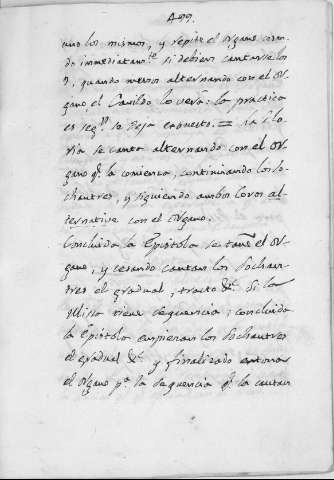 499.
uno los mismos, y repite el organo corea-
do immediatam.te si debien cantarse los
9, quando menos alternando con el or-
gano el Cavildo lo versa: la practica
es seg.n se deja expuesto. = La Glo-
ria se canta alternando con el or-
gano q.e la comienza, continuando los So-
chantres, y siguiendo ambos Coros al-
ternative con el organo.
Concluida la Epistola se tañe el or-
gano, y cesando cantan los Sochan-
tres el gradual, tracto &c. Si la
Misa tiene sequencia, concluida
la Epistola empiezan los Sochantres
el gradual &c. y finalizado entona
el organo p.a la sequencia q.e la cantan